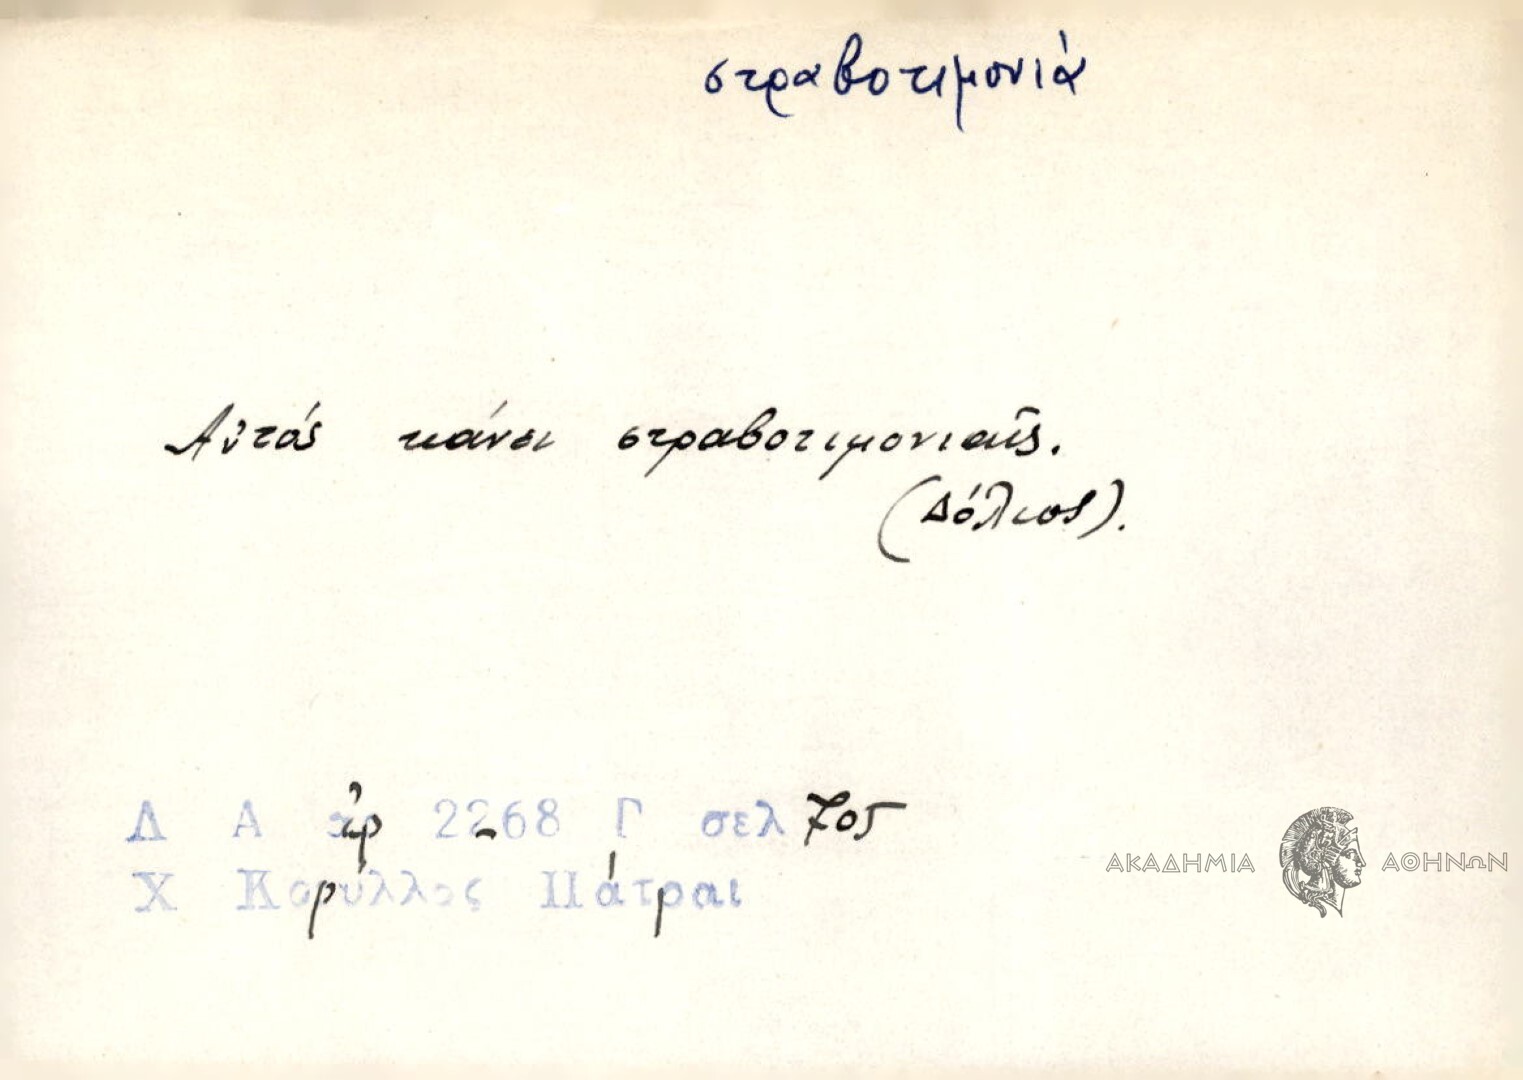 στραβοτιμονιά
Αὐτός κάνει στραβοτιμονιαῖς.
(Δόλιος).
Δ Α ἀρ 2268 Γ σελ 705
Χ Κορύλλος Πάτραι
ΑΚΑΔΗΜΙΑ ΑΘΗΝΩΝ